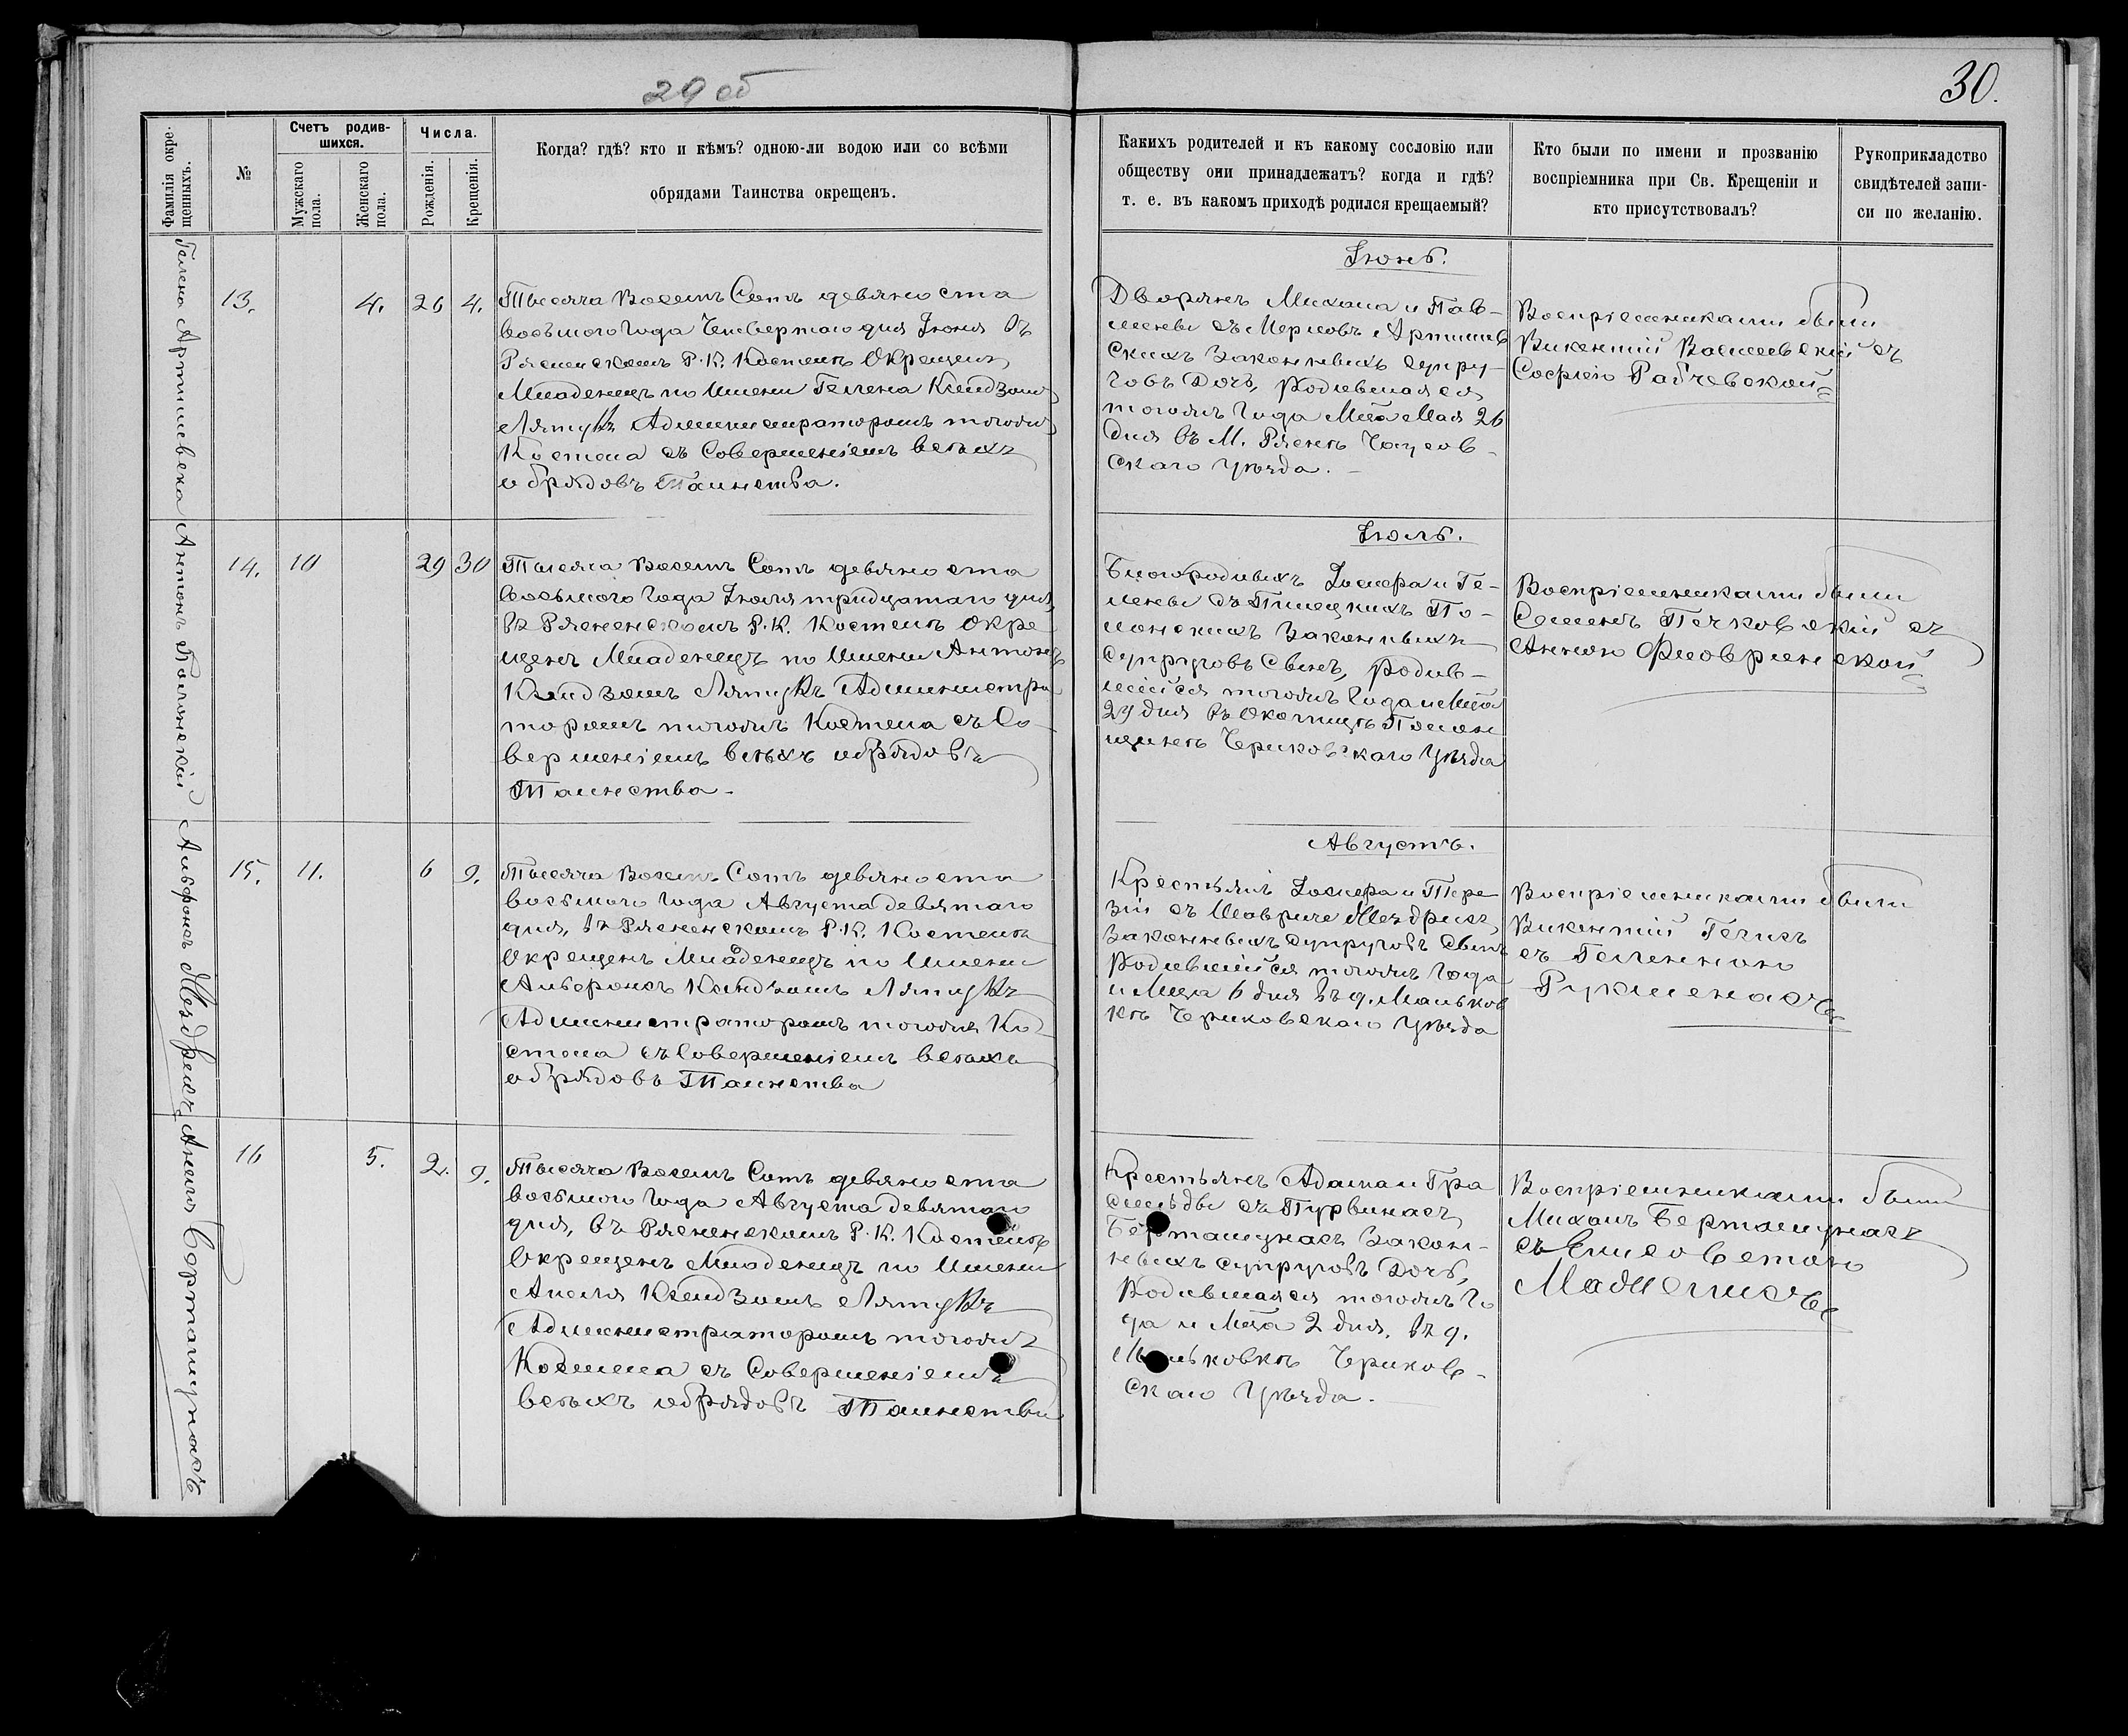 29 об
30.
Фамилія окре-
щенныхъ.
№
Счетъ родив-
шихся.
Мужскаго
пола.
Женскаго
пола.
Числа.
Рожденія.
Крещенія.
Когда? гдѣ? кто и кѣмъ? одною-ли водою или со всѣми
обрядами Таинства окрещенъ.
Какихъ родителей и къ какому сословію или
обществу они принадлежатъ? когда и гдѣ?
т. е. въ какомъ приходѣ родился крещаемый?
Кто были по имени и прозванію
воспріемника при Св. Крещеніи и
кто присутствовалъ?
Рукоприкладство
свидѣтелей запи-
си по желанію.
Іюнь.
Гелена Артишевска
13.
4.
26
4.
Тысяча Восемъ Сотъ девяноста
восьмого Года Четвертаго дня Іюня въ
Р.К. Костелѣ Окрещенъ
Младенецъ по Имени Гелена Ксендзомъ
Лятукъ Администраторомъ тогожъ
Костела съ Совершеніемъ всѣхъ
обрядовъ Таинства.
Дворянъ Михаила и Пав-
лины съ Артишев
скихъ Законныхъ Супру-
говъ Дочь, Родившаяся
тогожъ Года Мца Мая 26
дня въ М. Ряснѣ Чаусов-
скаго Уѣзда.
Воспріемниками были
Викентій съ
Софією Рабчевской
Іюль.
Антонъ Полонскій
14.
10
29
30
Тысяча Восемъ Сотъ девяноста
восьмого Года Іюля тридцатаго дня,
въ Рясненскомъ Р.К. Костелѣ Окре
щенъ Младенецъ по Имени Антонъ
Ксендзомъ Лятукъ Администра
торомъ тогожъ Костела съ Со-
вершеніемъ всѣхъ обрядовъ
Таинства.
Благородныхъ Іосифа и Ге-
лены съ По-
лонскихъ Законныхъ
Супруговъ Сынъ, Родив-
шійся тогожъ Года и Мца
29 дня въ Околицѣ Полон
щинѣ Чериковскаго Уѣзда
Воспріемниками были
Семенъ Печковскій съ
Анною
Августъ.
Альфонсъ Мездрисъ
15.
11.
6
9.
Тысяча Восемъ Сотъ девяноста
восьмого Года Августа девятаго
дня, въ Рясненскомъ Р.К. Костелѣ
Окрещенъ Младенецъ по Имени
Альфонсъ Ксендзомъ Лятукъ
Администраторомъ тогожъ Ко
стела съ Совершеніемъ всѣхъ
обрядовъ Таинства
Крестьянъ Іосифа и Тере
зіи съ Мездрисъ,
Законныхъ Супруговъ Сынъ
Родившійся тогожъ Года
и Мца 6 дня въ д. Мальков
кѣ Чериковскаго Уѣзда
Воспріемниками были
Викентій Гечисъ
съ Геленною
Анеля Берташунасъ
16
5.
2.
9.
Тысяча Восемъ Сотъ девяноста
восьмого Года Августа девятаго
дня, въ Рясненскомъ Р.К. Костелѣ
Окрещенъ Младенецъ по Имени
Анеля Ксендзомъ Лятукъ
Администраторомъ тогожъ
Костела съ Совершеніемъ
всѣхъ обрядовъ Таинства
Крестьянъ Адама и Гра
сильды съ Пурвинасъ
Берташунасъ Закон-
ныхъ Супруговъ Дочь,
Родившаяся тогожъ Го
да и Мца 2 дня, въ д.
Мальковкѣ Чериков-
скаго Уѣзда.
Воспріемниками были
Михаилъ Берташунасъ
съ Елисоветою